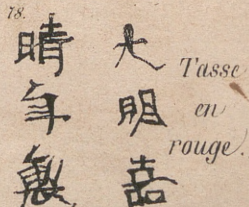 78.
大明嘉
晴年製
Tasse
en
rouge.